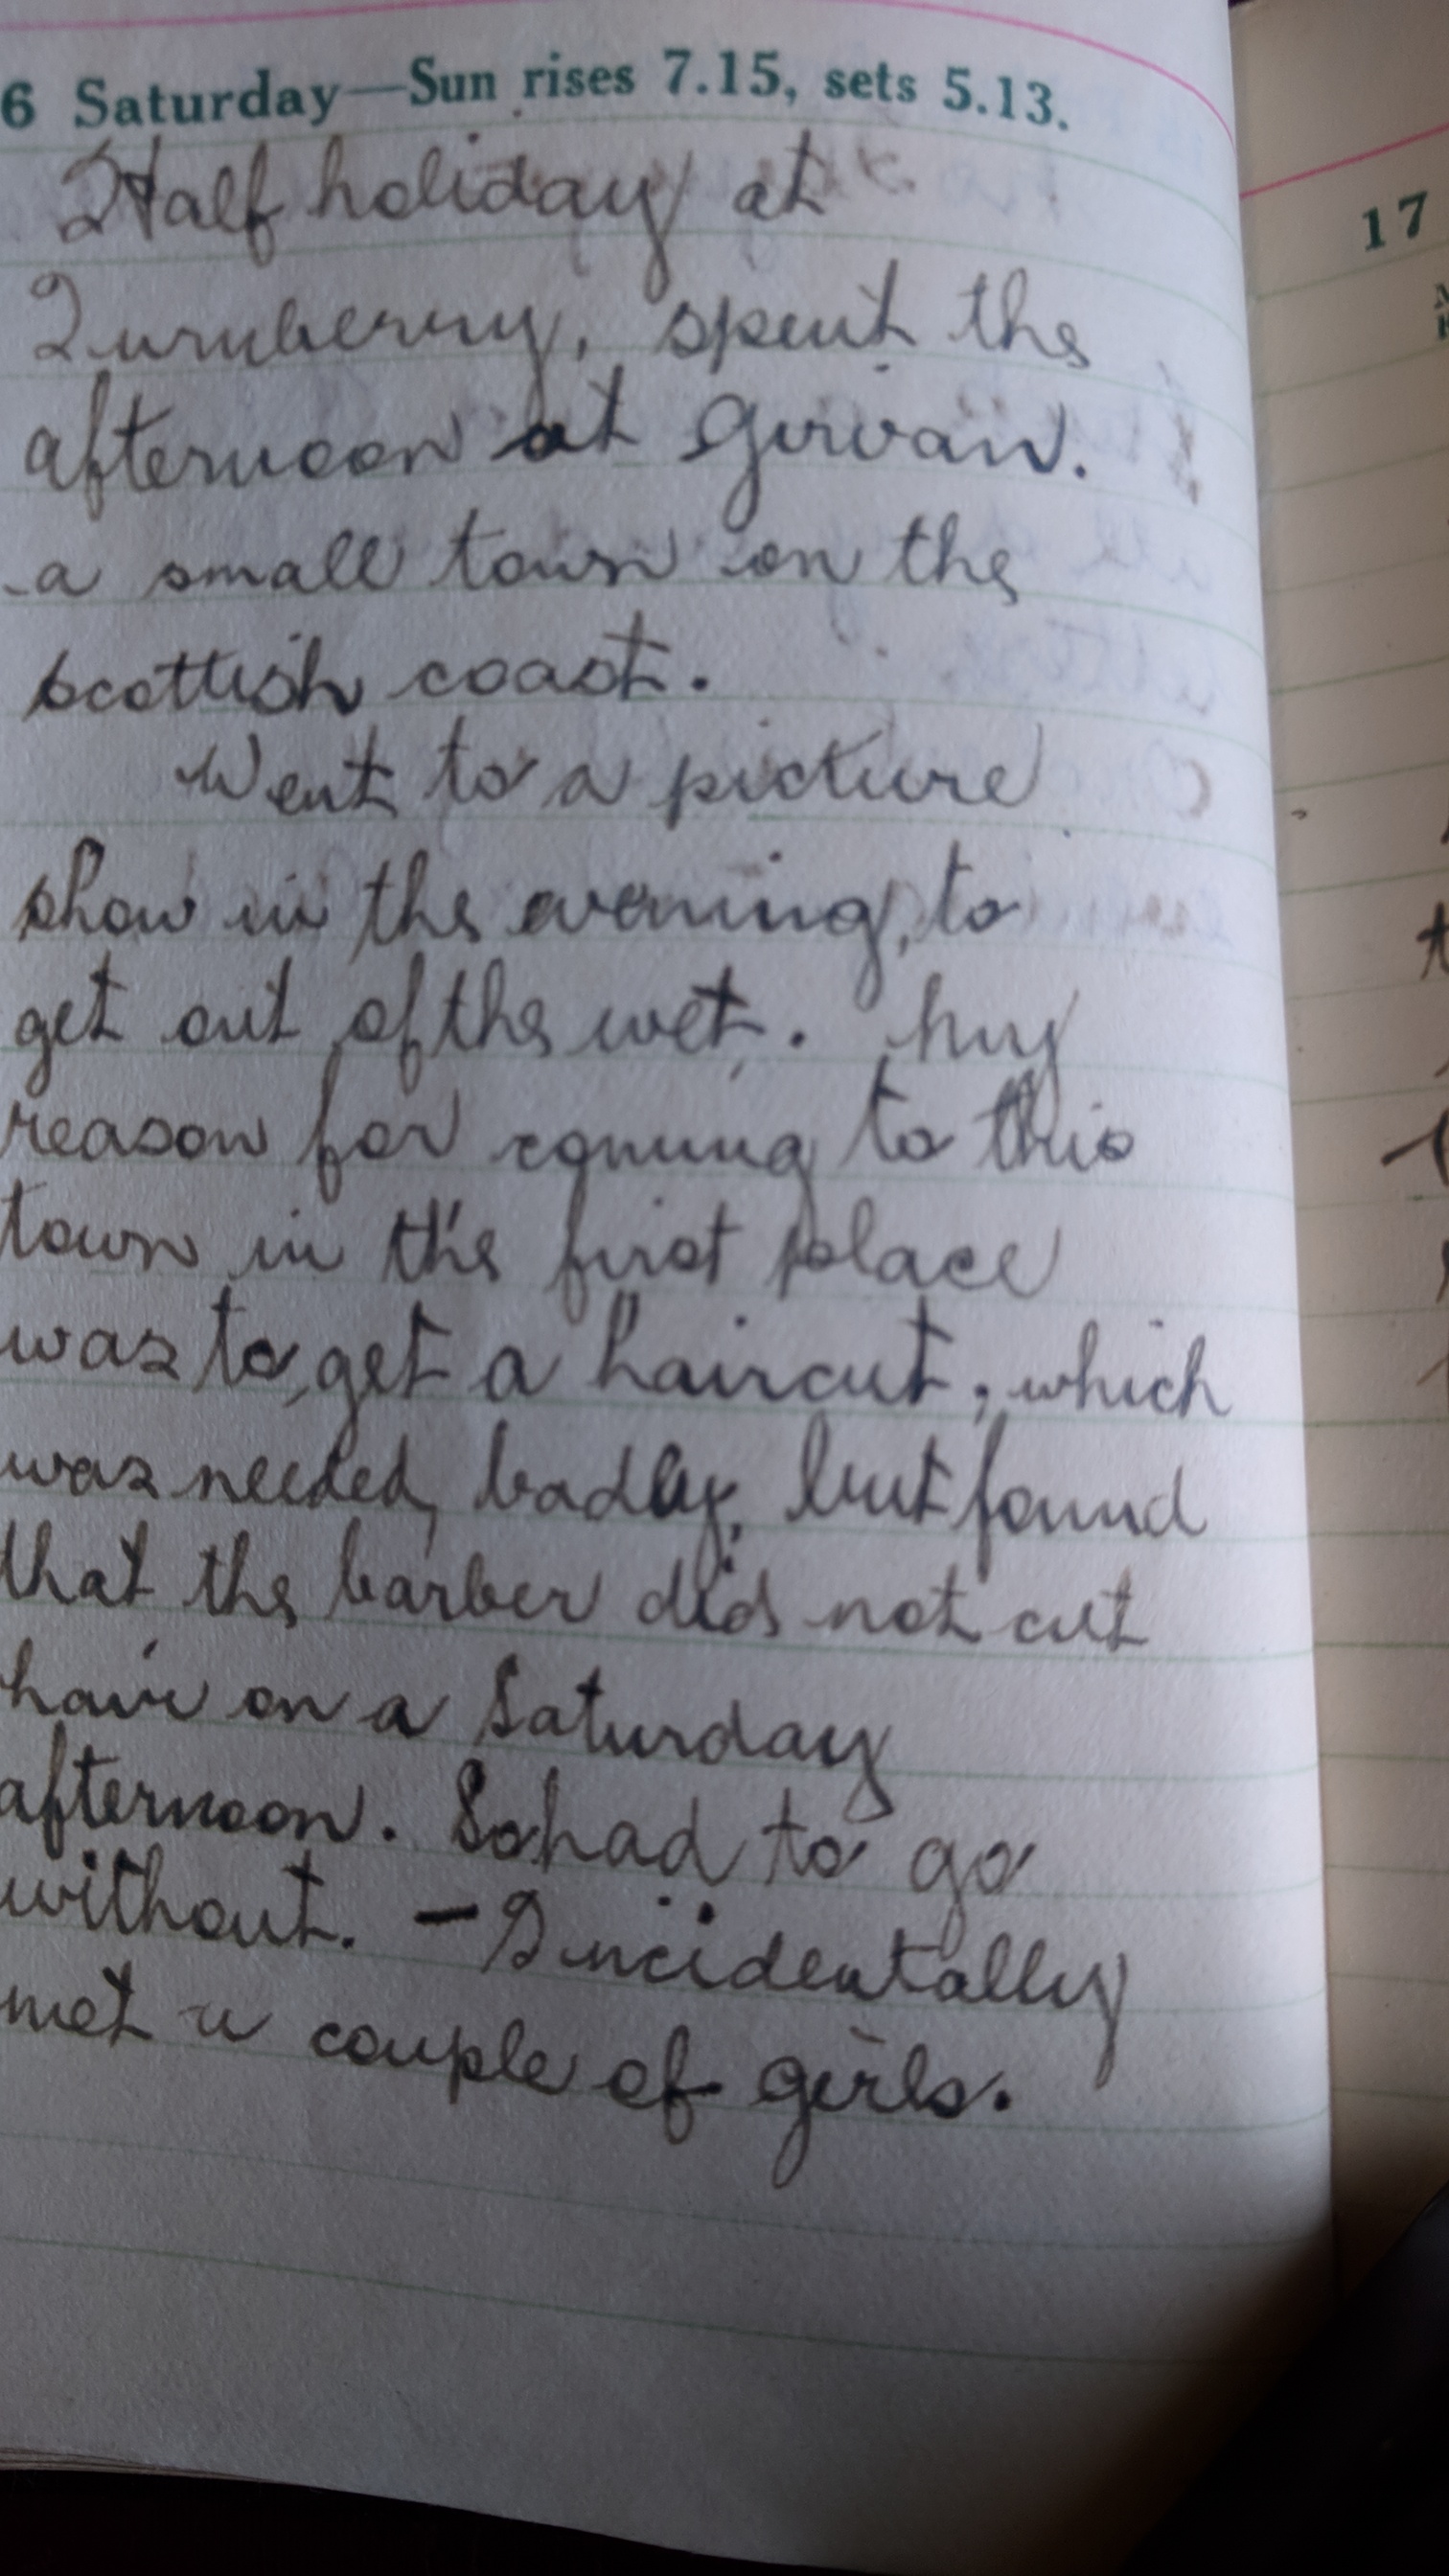 6 Saturday—Sun rises 7.15, sets 5.13.
Half holiday at
Turnberry, spent the
afternoon at Girvan.
a small town on the
scottish coast.
Went to a picture
show in the evening, to
get out of the wet. My
reason for coming to this
town in the first place
was to get a haircut, which
was needed, badly, but found
that the barber did not cut
hair on a Saturday
afternoon. So had to go
without. – Incidentally
met a couple of girls.
17